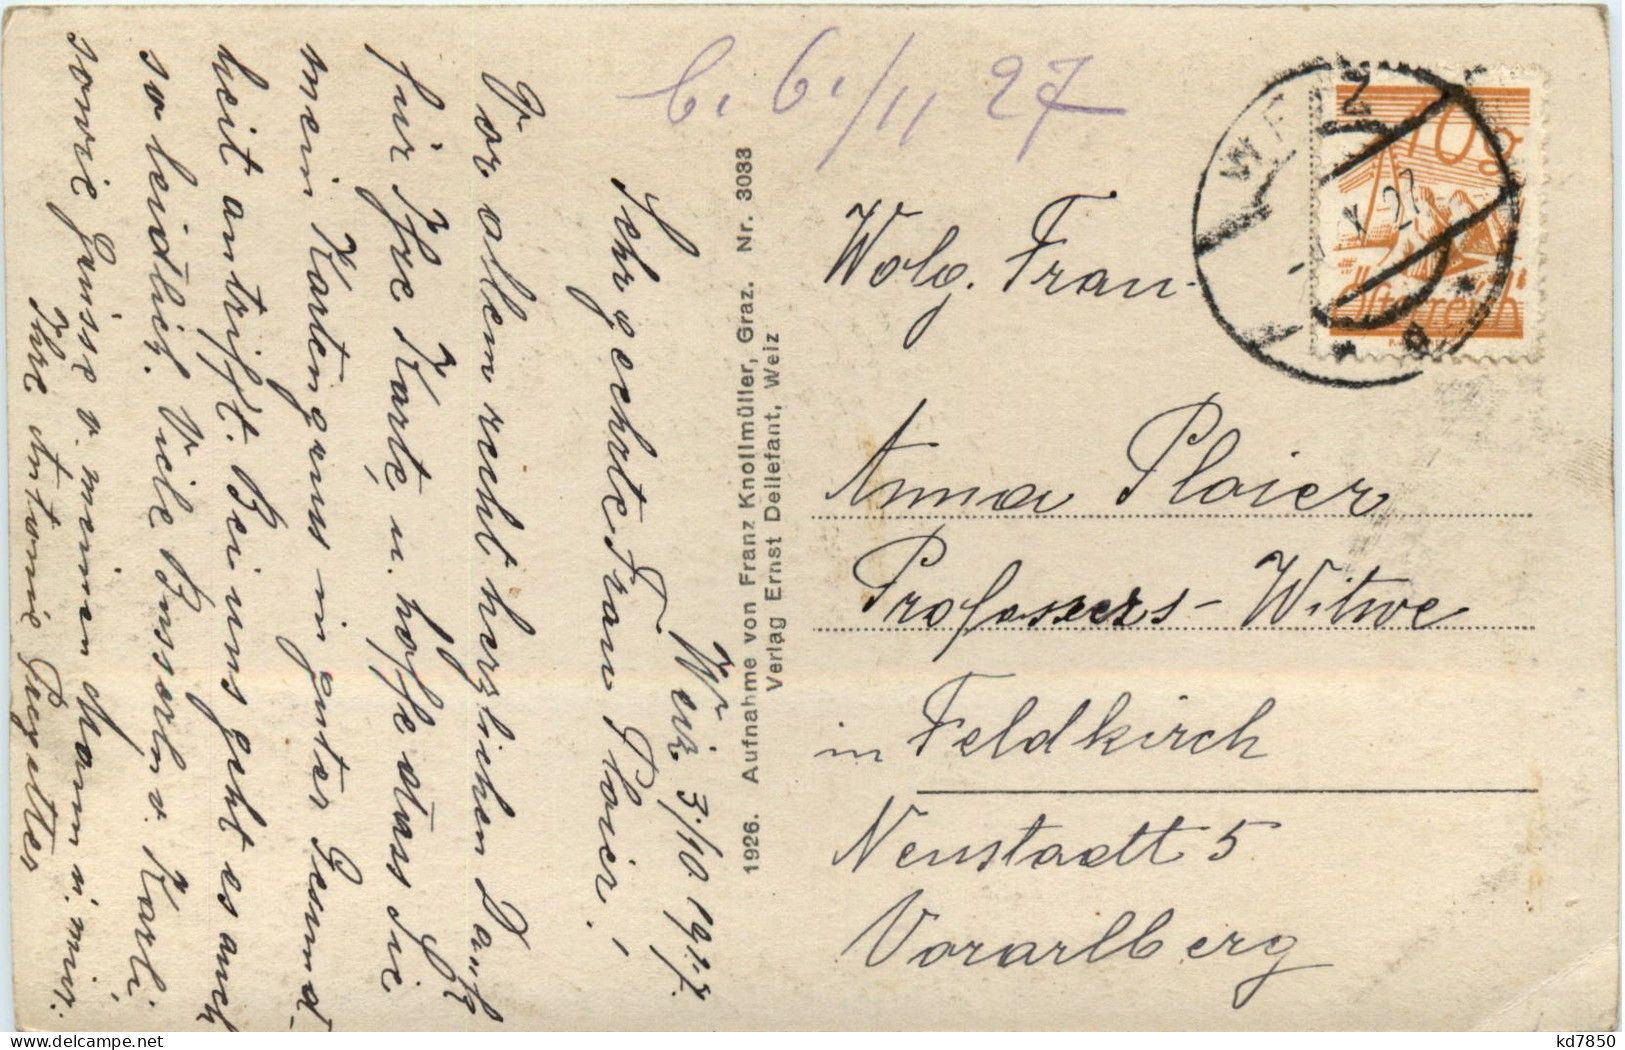 b. 6./11 27
WEIZ
X. 27
10g
Österreich
Wolg. Frau
Anna Plaier
Professers-Witwe
in Feldkirch
Neustadt 5
Vorarlberg
1926. Aufnahme von Franz Knollmüller, Graz. Nr. 3033
Verlag Ernst Dellefant, Weiz
Weiz 3./10. 1927.
Sehrgeehrte Frau Plaier!
Vor allem recht herzlichen Dank
für Ihre Karte, u. hoffe dass Sie
mein Kartengruss in guter Gesund-
heit antrifft. Bei uns geht es auch
so leidlich. Viele Busserln v. Karli,
sowie Grüsse v. meinen Mann u. mir.
Ihre Antonie
kd7850